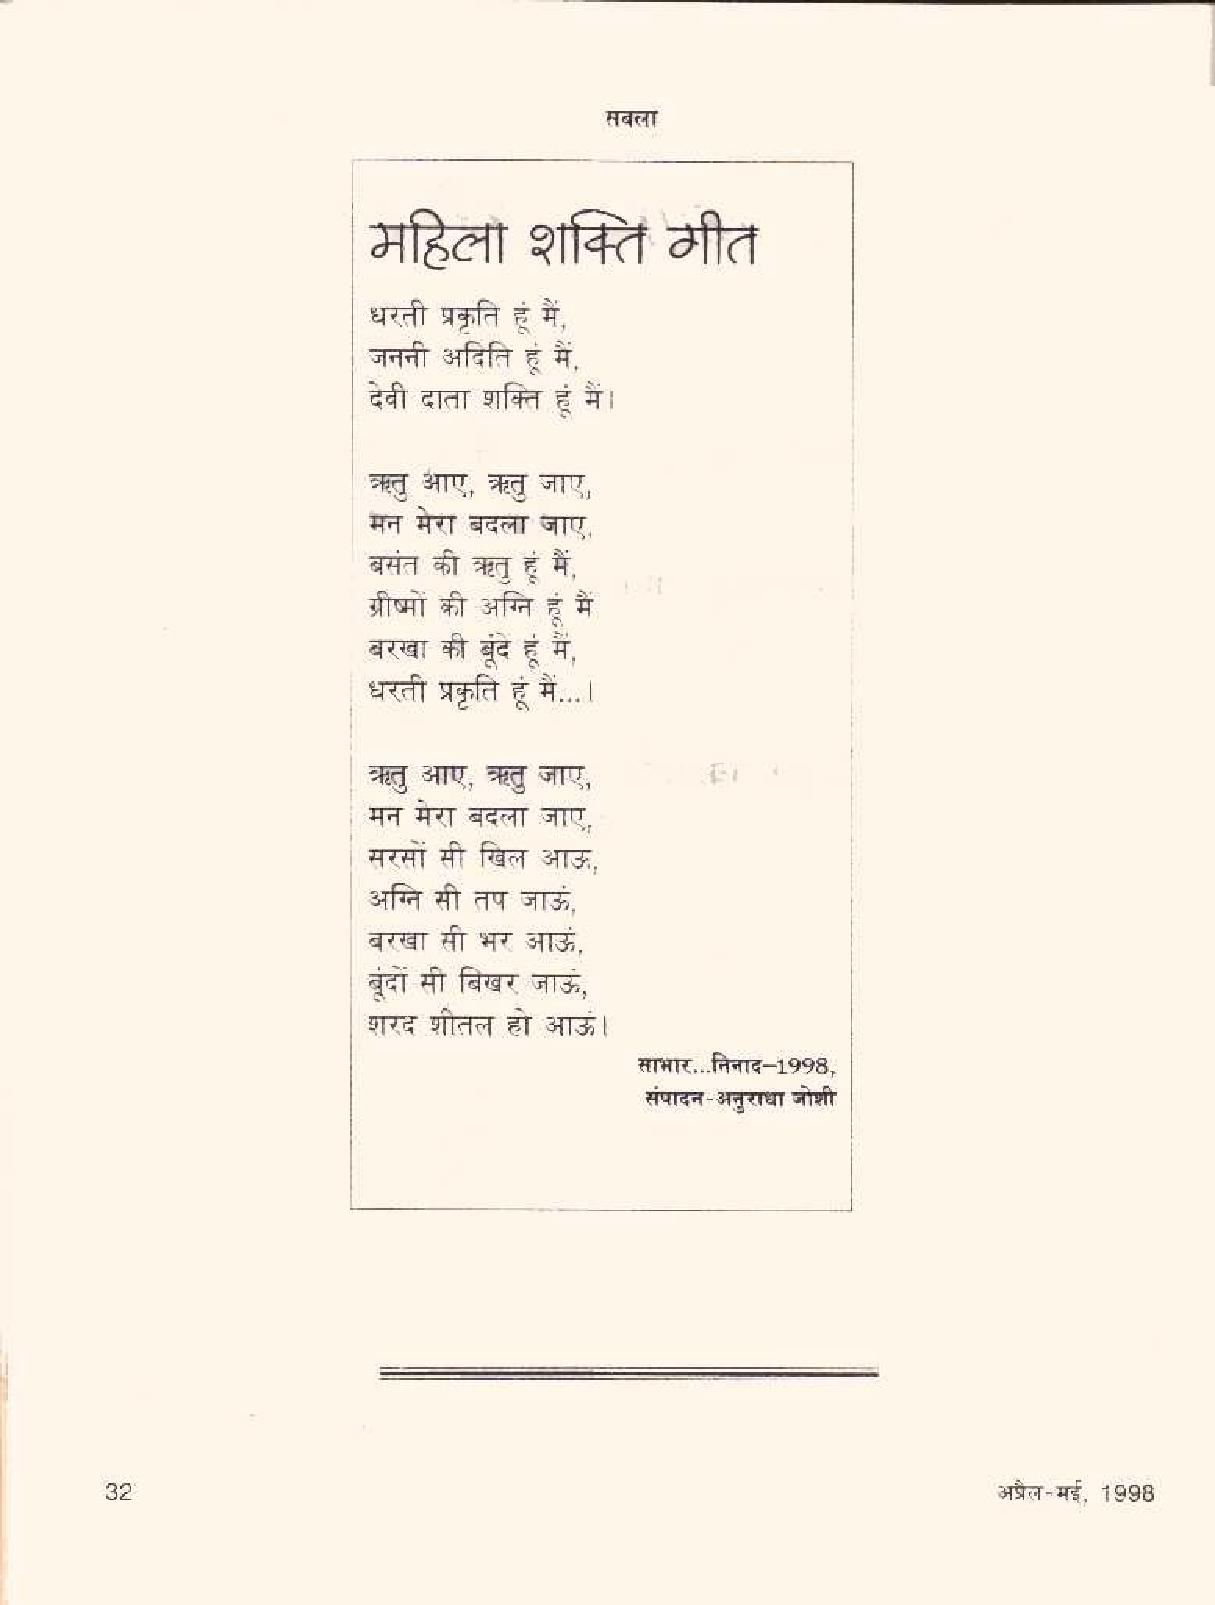 सबला
महिला शक्ति गीत
धरती प्रकृति हूं मैं,
जननी अदिति हूं मैं,
देवी दाता शक्ति हूं मैं।
ऋतु आए, ऋतु जाए,
मन मेरा बदला जाए,
बसंत की ऋतु हूं मैं,
ग्रीष्मों की अग्नि हूं मैं
बरखा की बूंदे हूं मैं,
धरती प्रकृति हूं मैं...।
ऋतु आए, ऋतु जाए,
मन मेरा बदला जाए,
सरसों सी खिल आऊं,
अग्नि सी तप जाऊं,
बरखा सी भर आऊं,
बूंदों सी बिखर जाऊं,
शरद शीतल हो आऊं।
साभार...निनाद–1998,
संपादन-अनुराधा जोशी
32
अप्रैल-मई, 1998